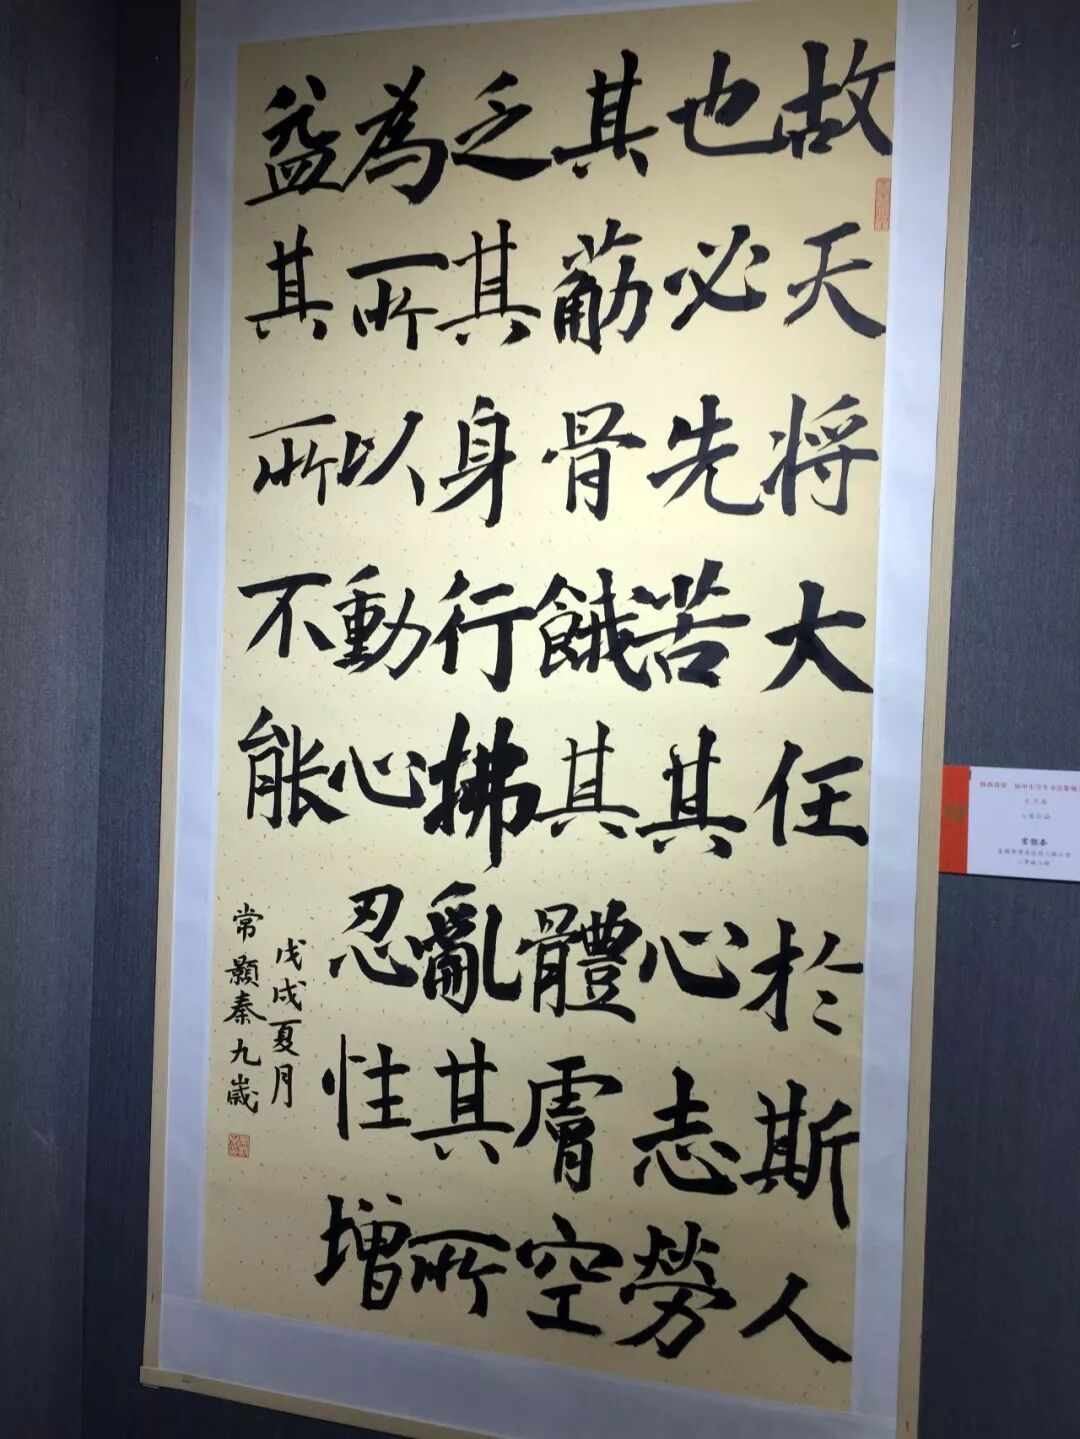 故天将大任於斯人
也必先苦其心志勞
其筋骨餓其體膚空
乏其身行拂亂其所
為所以動心忍性增
益其所不能
戊戌夏月
常顥秦九歲
入展作品